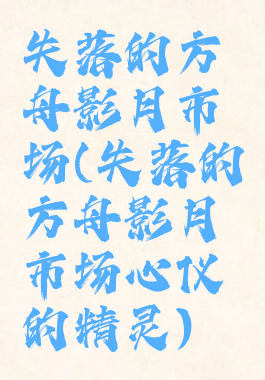 失落的方
舟影月市
场(失落的
方舟影月
市场心仪
的精灵)